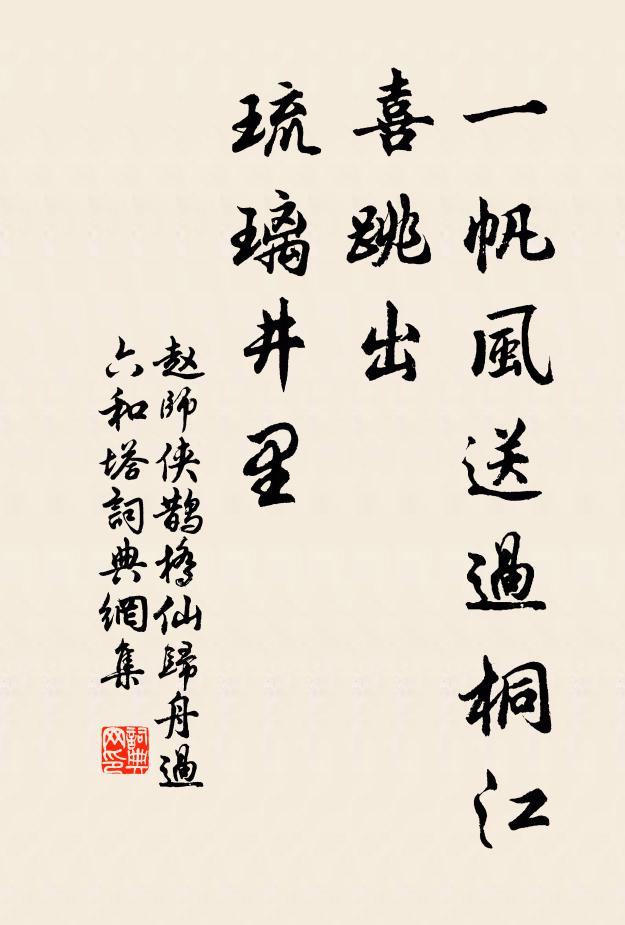 一帆風送過桐江
喜跳出
琉璃井里
赵師侠鵲橋仙歸舟過
六和塔詞典網集
詞典
网印